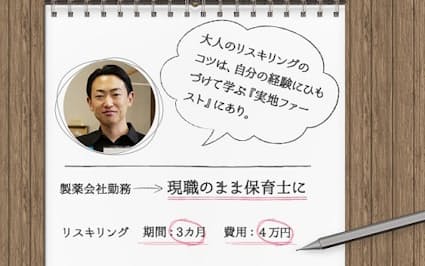 大人のリスキリングの
コツは、自分の経験にひも
づけて学ぶ『実地ファー
スト』にあり。
製薬会社勤務 → 現職のまま保育士に
リスキリング 期間：3カ月 費用：4万円